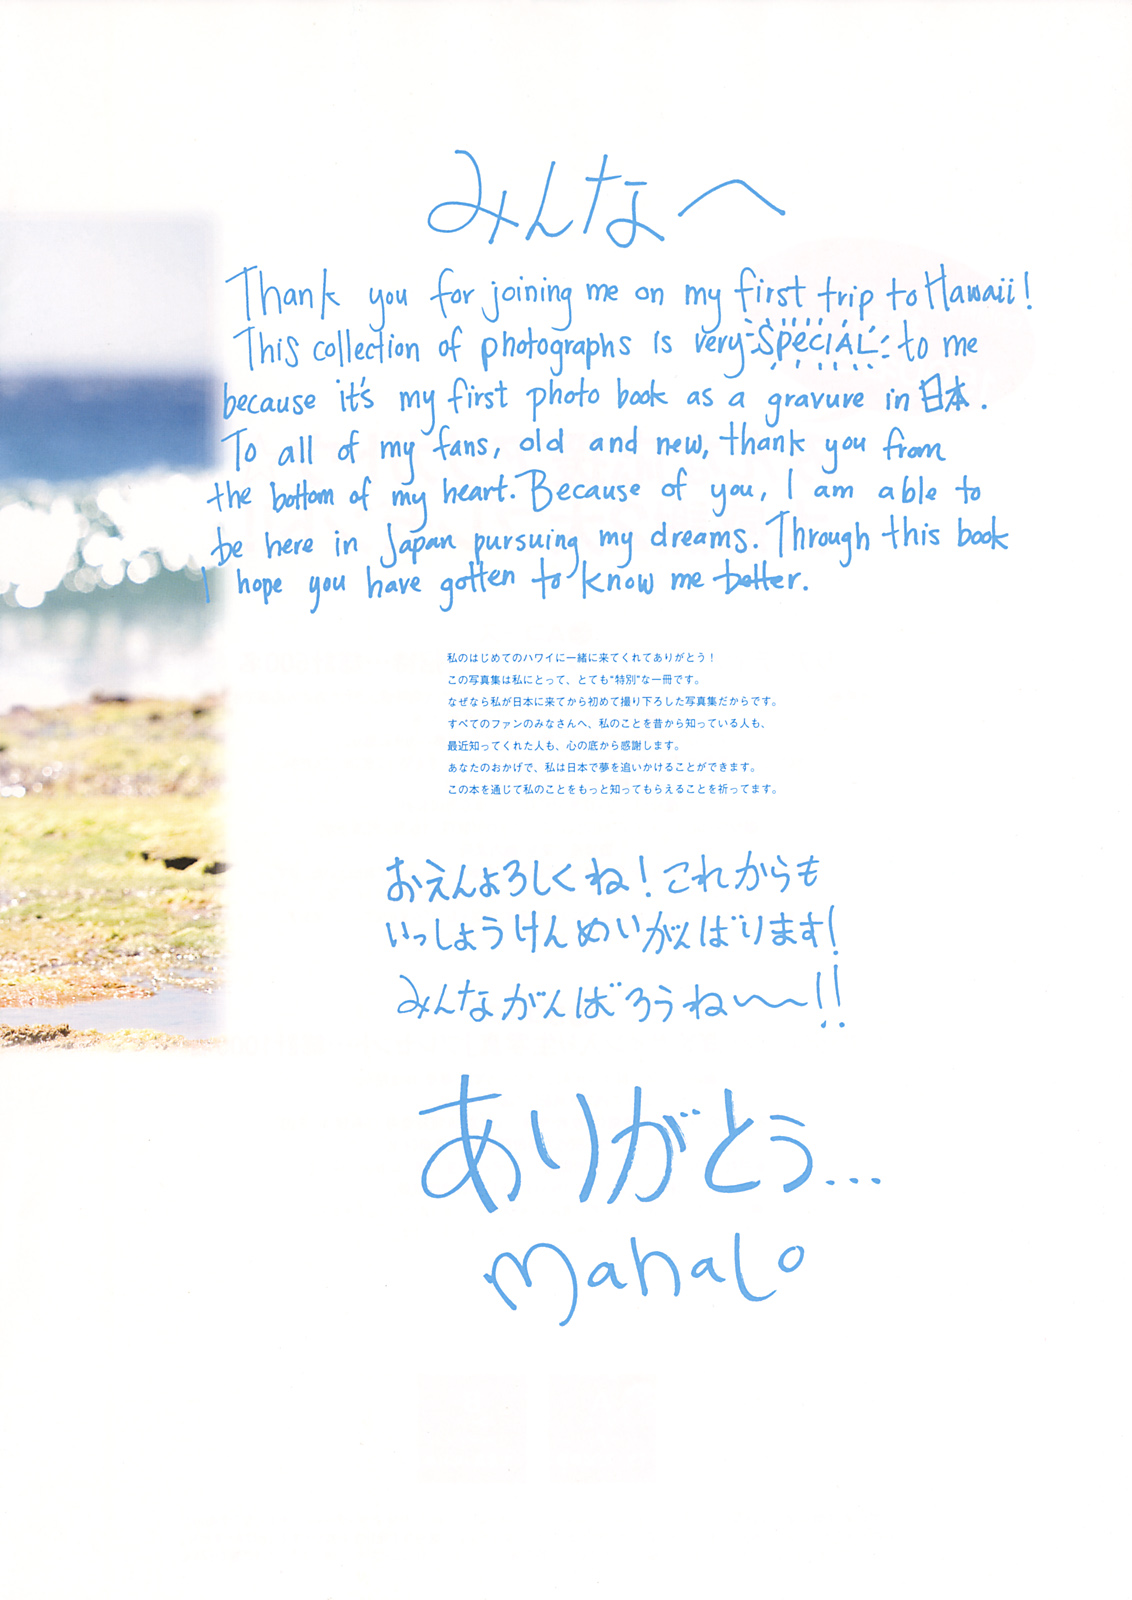 みんなへ
Thank you for joining me on my first trip to Hawaii!
This collection of photographs is very SpecIAL to me
because it's my first photo book as a gravure in 日本.
To all of my fans, old and new, thank you from
the bottom of my heart. Because of you, I am able to
be here in Japan pursuing my dreams. Through this book
I hope you have gotten to know me better.
私のはじめてのハワイに一緒に来てくれてありがとう！
この写真集は私にとって、とても“特別”な一冊です。
なぜなら私が日本に来てから初めて撮り下ろした写真集だからです。
すべてのファンのみなさんへ、私のことを昔から知っている人も、
最近知ってくれた人も、心の底から感謝します。
あなたのおかげで、私は日本で夢を追いかけることができます。
この本を通じて私のことをもっと知ってもらえることを祈ってます。
おえんよろしくね！これからも
いっしょうけんめいがんばります！
みんながんばろうね〜〜!!
ありがとう...
Mahalo